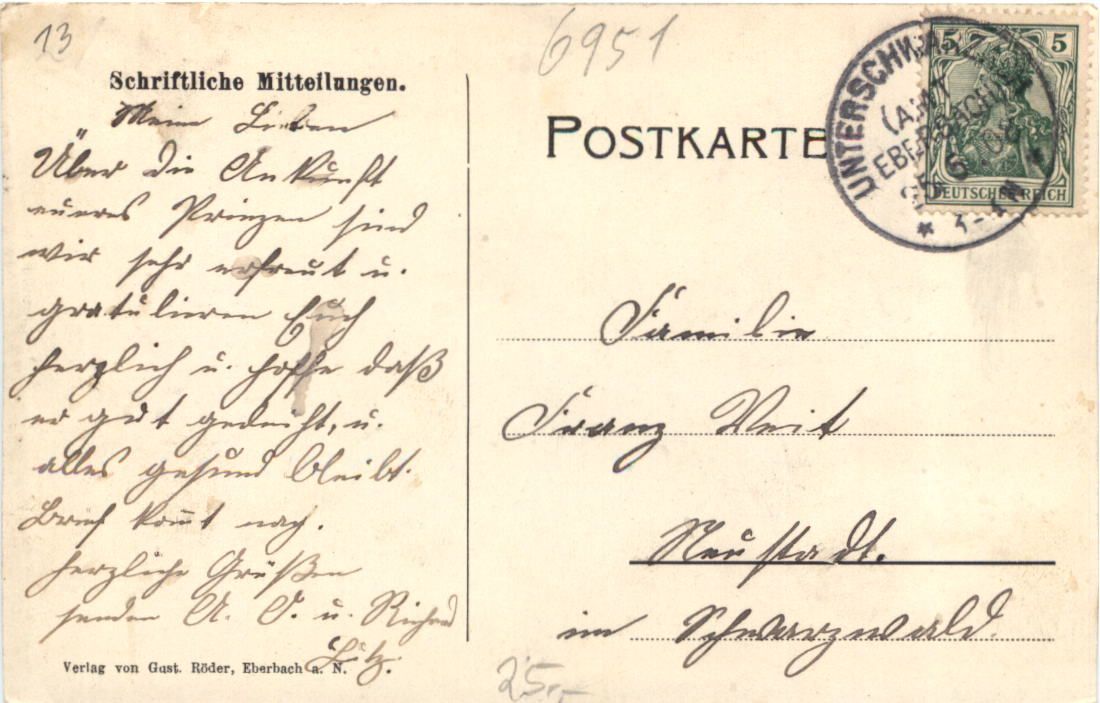 13
6951
Schriftliche Mitteilungen.
Meine Lieben
Über die Ankunft
eueres Prinzen sind
wir sehr erfreut u.
gratulieren Euch
herzlich u. hoffe daß
er gut gedeiht, u.
alles gesund bleibt.
Brief kom̅t nach.
Herzliche Grüßen
senden A. O. u. Richard
Lutz.
Verlag von Gust. Röder, Eberbach a. N.
POSTKARTE
UNTERSCHWARZ
(AMT
EBERBACH)
5 5
DEUTSCHES REICH
Familie
Franz Veit
Neustadt.
im Schwarzwald.
25,-